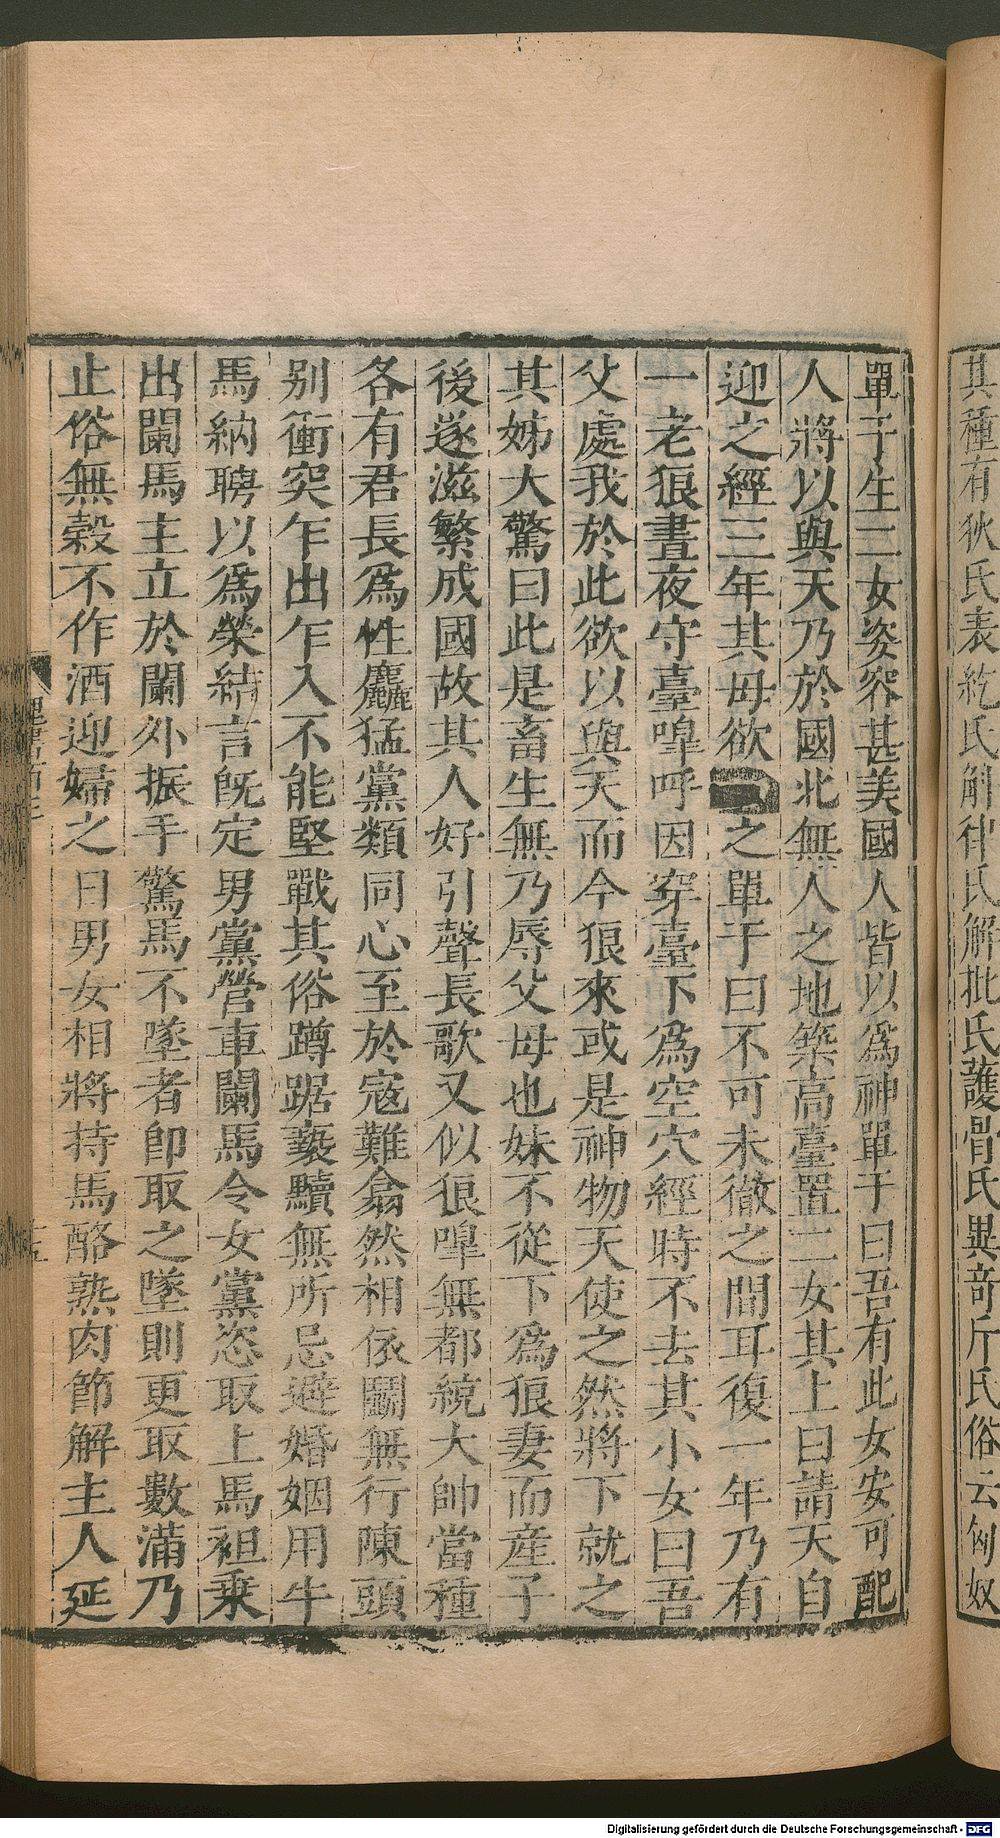 其種有狄氏表紇氏斛律氏解批氏護骨氏異奇斤氏俗云匈奴
單于生二女姿容甚美國人皆以爲神單于曰吾有此女安可配
人將以與天乃於國北無人之地築高臺置二女其上曰請天自
迎之經三年其母欲之單于曰不可未徹之間耳復一年乃有
一老狼晝夜守臺嘷呼因穿臺下爲空穴經時不去其小女曰吾
父處我於此欲以與天而今狼來或是神物天使之然將下就之
其姊大驚曰此是畜生無乃辱父母也妹不從下爲狼妻而産子
後遂滋繁成國故其人好引聲長歌又似狼嘷無都統大帥當種
各有君長爲性麤猛黨類同心至於寇難翕然相依鬬無行陳頭
别衝突乍出乍入不能堅戰其俗蹲踞䙝黷無所忌避婚姻用牛
馬納聘以爲榮結言旣定男黨營車闌馬令女黨恣取上馬袒乗
出闌馬主立於闌外振手驚馬不墜者卽取之墜則更取數滿乃
止俗無穀不作酒迎婦之日男女相將持馬酪熟肉節解主人延
Digitalisierung gefördert durch die Deutsche Forschungsgemeinschaft - DFG